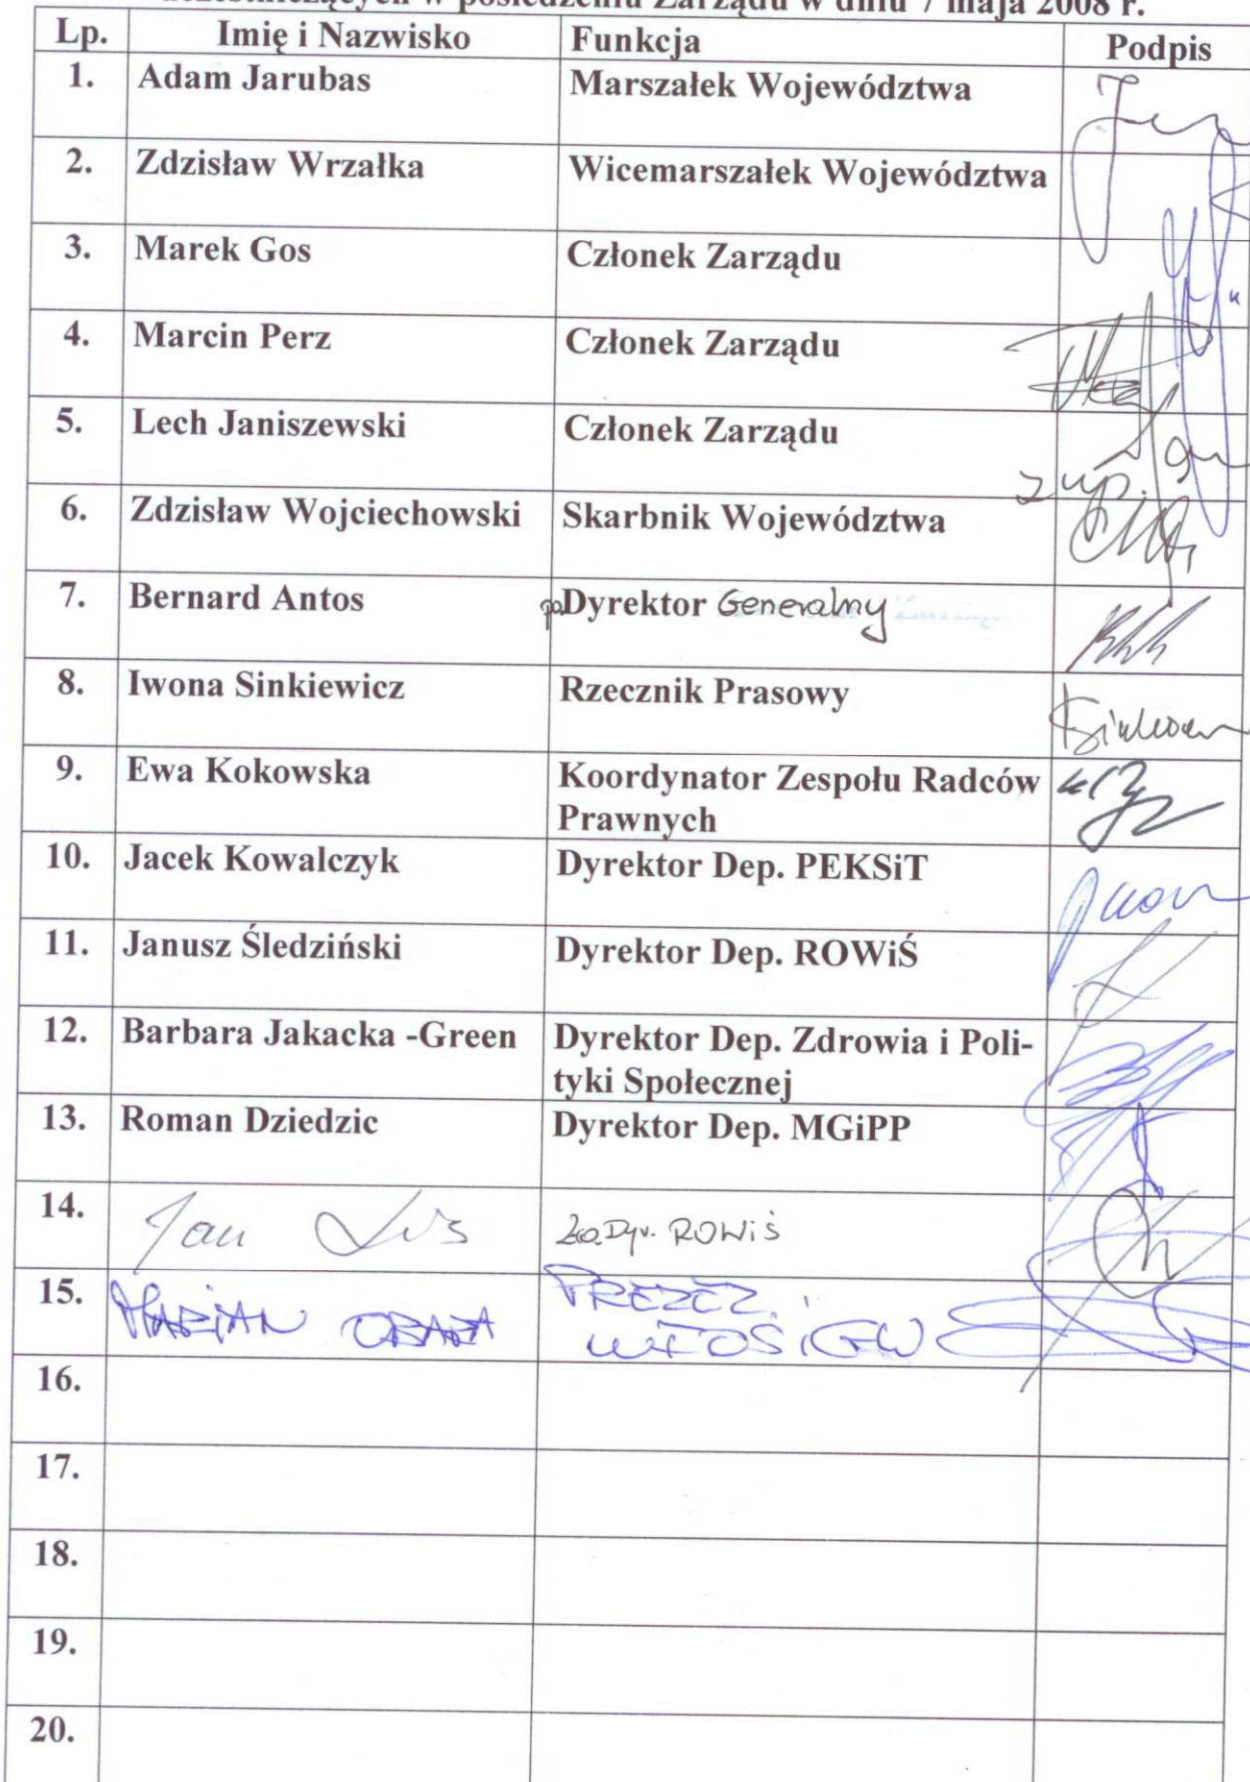 uczestniczących w posiedzeniu Zarządu w dniu 7 maja 2008 r.
Lp. Imię i Nazwisko Funkcja Podpis
1. Adam Jarubas Marszałek Województwa
2. Zdzisław Wrzałka Wicemarszałek Województwa
3. Marek Gos Członek Zarządu
4. Marcin Perz Członek Zarządu
5. Lech Janiszewski Członek Zarządu
z up.
6. Zdzisław Wojciechowski Skarbnik Województwa
7. Bernard Antos Dyrektor Generalny
8. Iwona Sinkiewicz Rzecznik Prasowy
9. Ewa Kokowska Koordynator Zespołu Radców
Prawnych
10. Jacek Kowalczyk Dyrektor Dep. PEKSiT
11. Janusz Śledziński Dyrektor Dep. ROWiŚ
12. Barbara Jakacka -Green Dyrektor Dep. Zdrowia i Poli-
tyki Społecznej
13. Roman Dziedzic Dyrektor Dep. MGiPP
14. Jan Lis Dyr. ROWiŚ
15. MARIAN PREZEZ
WFOŚiGW
16.
17.
18.
19.
20.